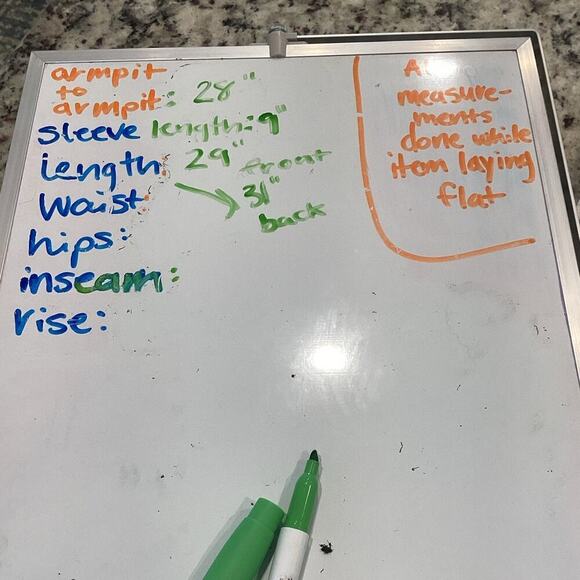 armpit
to
armpit: 28"
sleeve length: 9"
length 29" front
31"
back
waist:
hips:
inseam:
rise:
All
measure-
ments
done while
item laying
flat